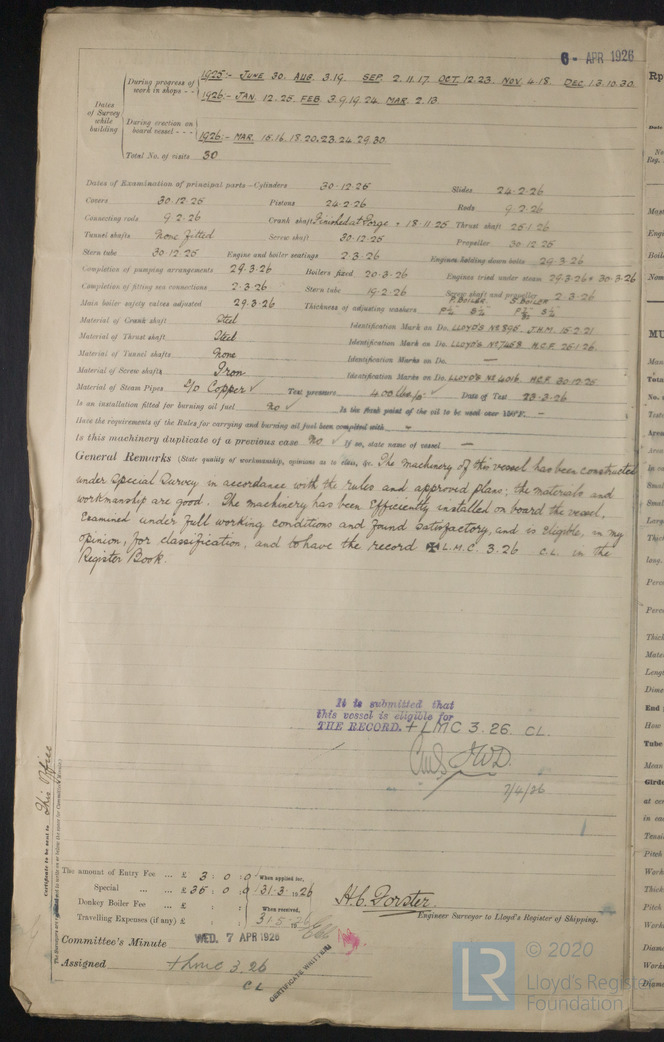 6 - APR 1926
Dates of Survey while building
During progress of work in shops - - 1925:- JUNE 30. AUG. 3.19. SEP. 2.11.17. OCT. 12.23. NOV. 4.18. DEC. 1.3.10.30.
1926:- JAN. 12.25. FEB. 3.9.19.24. MAR. 2.13.
During erection on board vessel - - - 1926:- MAR. 15.16.18.20.23.24.29.30.
Total No. of visits 30
Dates of Examination of principal parts—Cylinders 30.12.25 Slides 24.2.26
Covers 30.12.25 Pistons 24.2.26 Rods 9.2.26
Connecting rods 9.2.26 Crank shaft Finished at Forge + 18.11.25 Thrust shaft 25.1.26
Tunnel shafts None fitted Screw shaft 30.12.25 Propeller 30.12.25
Stern tube 30.12.25 Engine and boiler seatings 2.3.26 Engines holding down bolts 29.3.26
Completion of pumping arrangements 29.3.26 Boilers fixed 20.3.26 Engines tried under steam 29.3.26 + 30.3.26
Completion of fitting sea connections 2.3.26 Stern tube 19.2.26 Screw shaft and propeller 2.3.26
Main boiler safety valves adjusted 29.3.26 Thickness of adjusting washers P. BOILER. S. BOILER
Material of Crank shaft Steel Identification Mark on Do. LLOYD'S No 895. J.H.M. 15.2.21
Material of Thrust shaft Steel Identification Mark on Do. LLOYD'S No 7458 H.C.F. 25.1.26.
Material of Tunnel shafts None Identification Marks on Do. —
Material of Screw shafts Iron Identification Marks on Do. LLOYD'S No 4016. H.C.F. 30.12.25
Material of Steam Pipes S/D Copper ✓ Test pressure 400 lbs/□" Date of Test 23.3.26
Is an installation fitted for burning oil fuel No ✓ Is the flash point of the oil to be used over 150°F. —
Have the requirements of the Rules for carrying and burning oil fuel been complied with —
Is this machinery duplicate of a previous case No ✓ If so, state name of vessel —
General Remarks (State quality of workmanship, opinions as to class, &c. The machinery of this vessel has been constructed
under Special Survey in accordance with the rules and approved plans; the materials and
workmanship are good. The machinery has been Efficiently installed on board the vessel,
Examined under full working conditions and found satisfactory, and is eligible, in my
opinion, for classification, and to have the record ✠ L.M.C. 3.26 C.L. in the
Register Book.
It is submitted that
this vessel is eligible for
THE RECORD. + LMC 3.26. CL.
7/4/26
Certificate to be sent to This Office
The amount of Entry Fee ... £ 3 : 0 : 0 When applied for,
Special ... ... £ 35 : 0 : 0 31.3.1926
Donkey Boiler Fee ... £ : : When received,
Travelling Expenses (if any) £ : : 31.5.26
H.C. Forster.
Engineer Surveyor to Lloyd's Register of Shipping.
Committee's Minute WED. 7 APR 1926
Assigned + LMC 3.26
CL
CERTIFICATE WRITTEN
LR © 2020
Lloyd's Register
Foundation